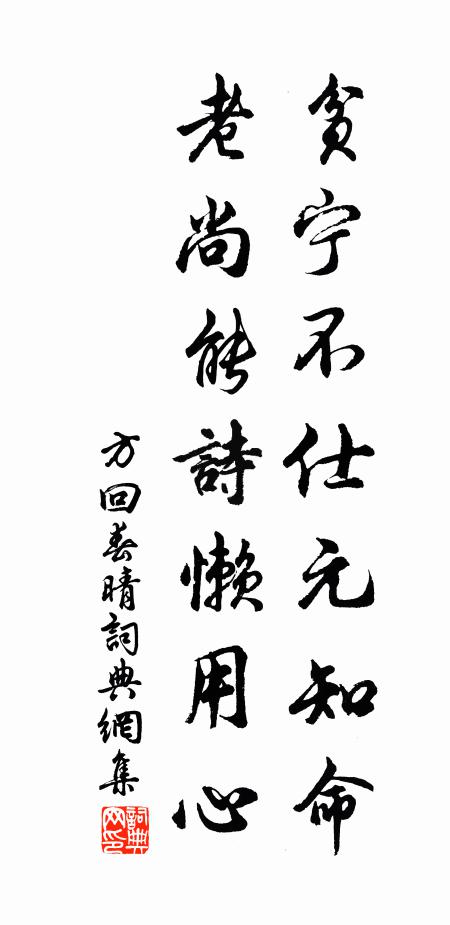 贫宁不仕元知命
老尚能詩懒用心
方回春晴詞典網集
詞典网印